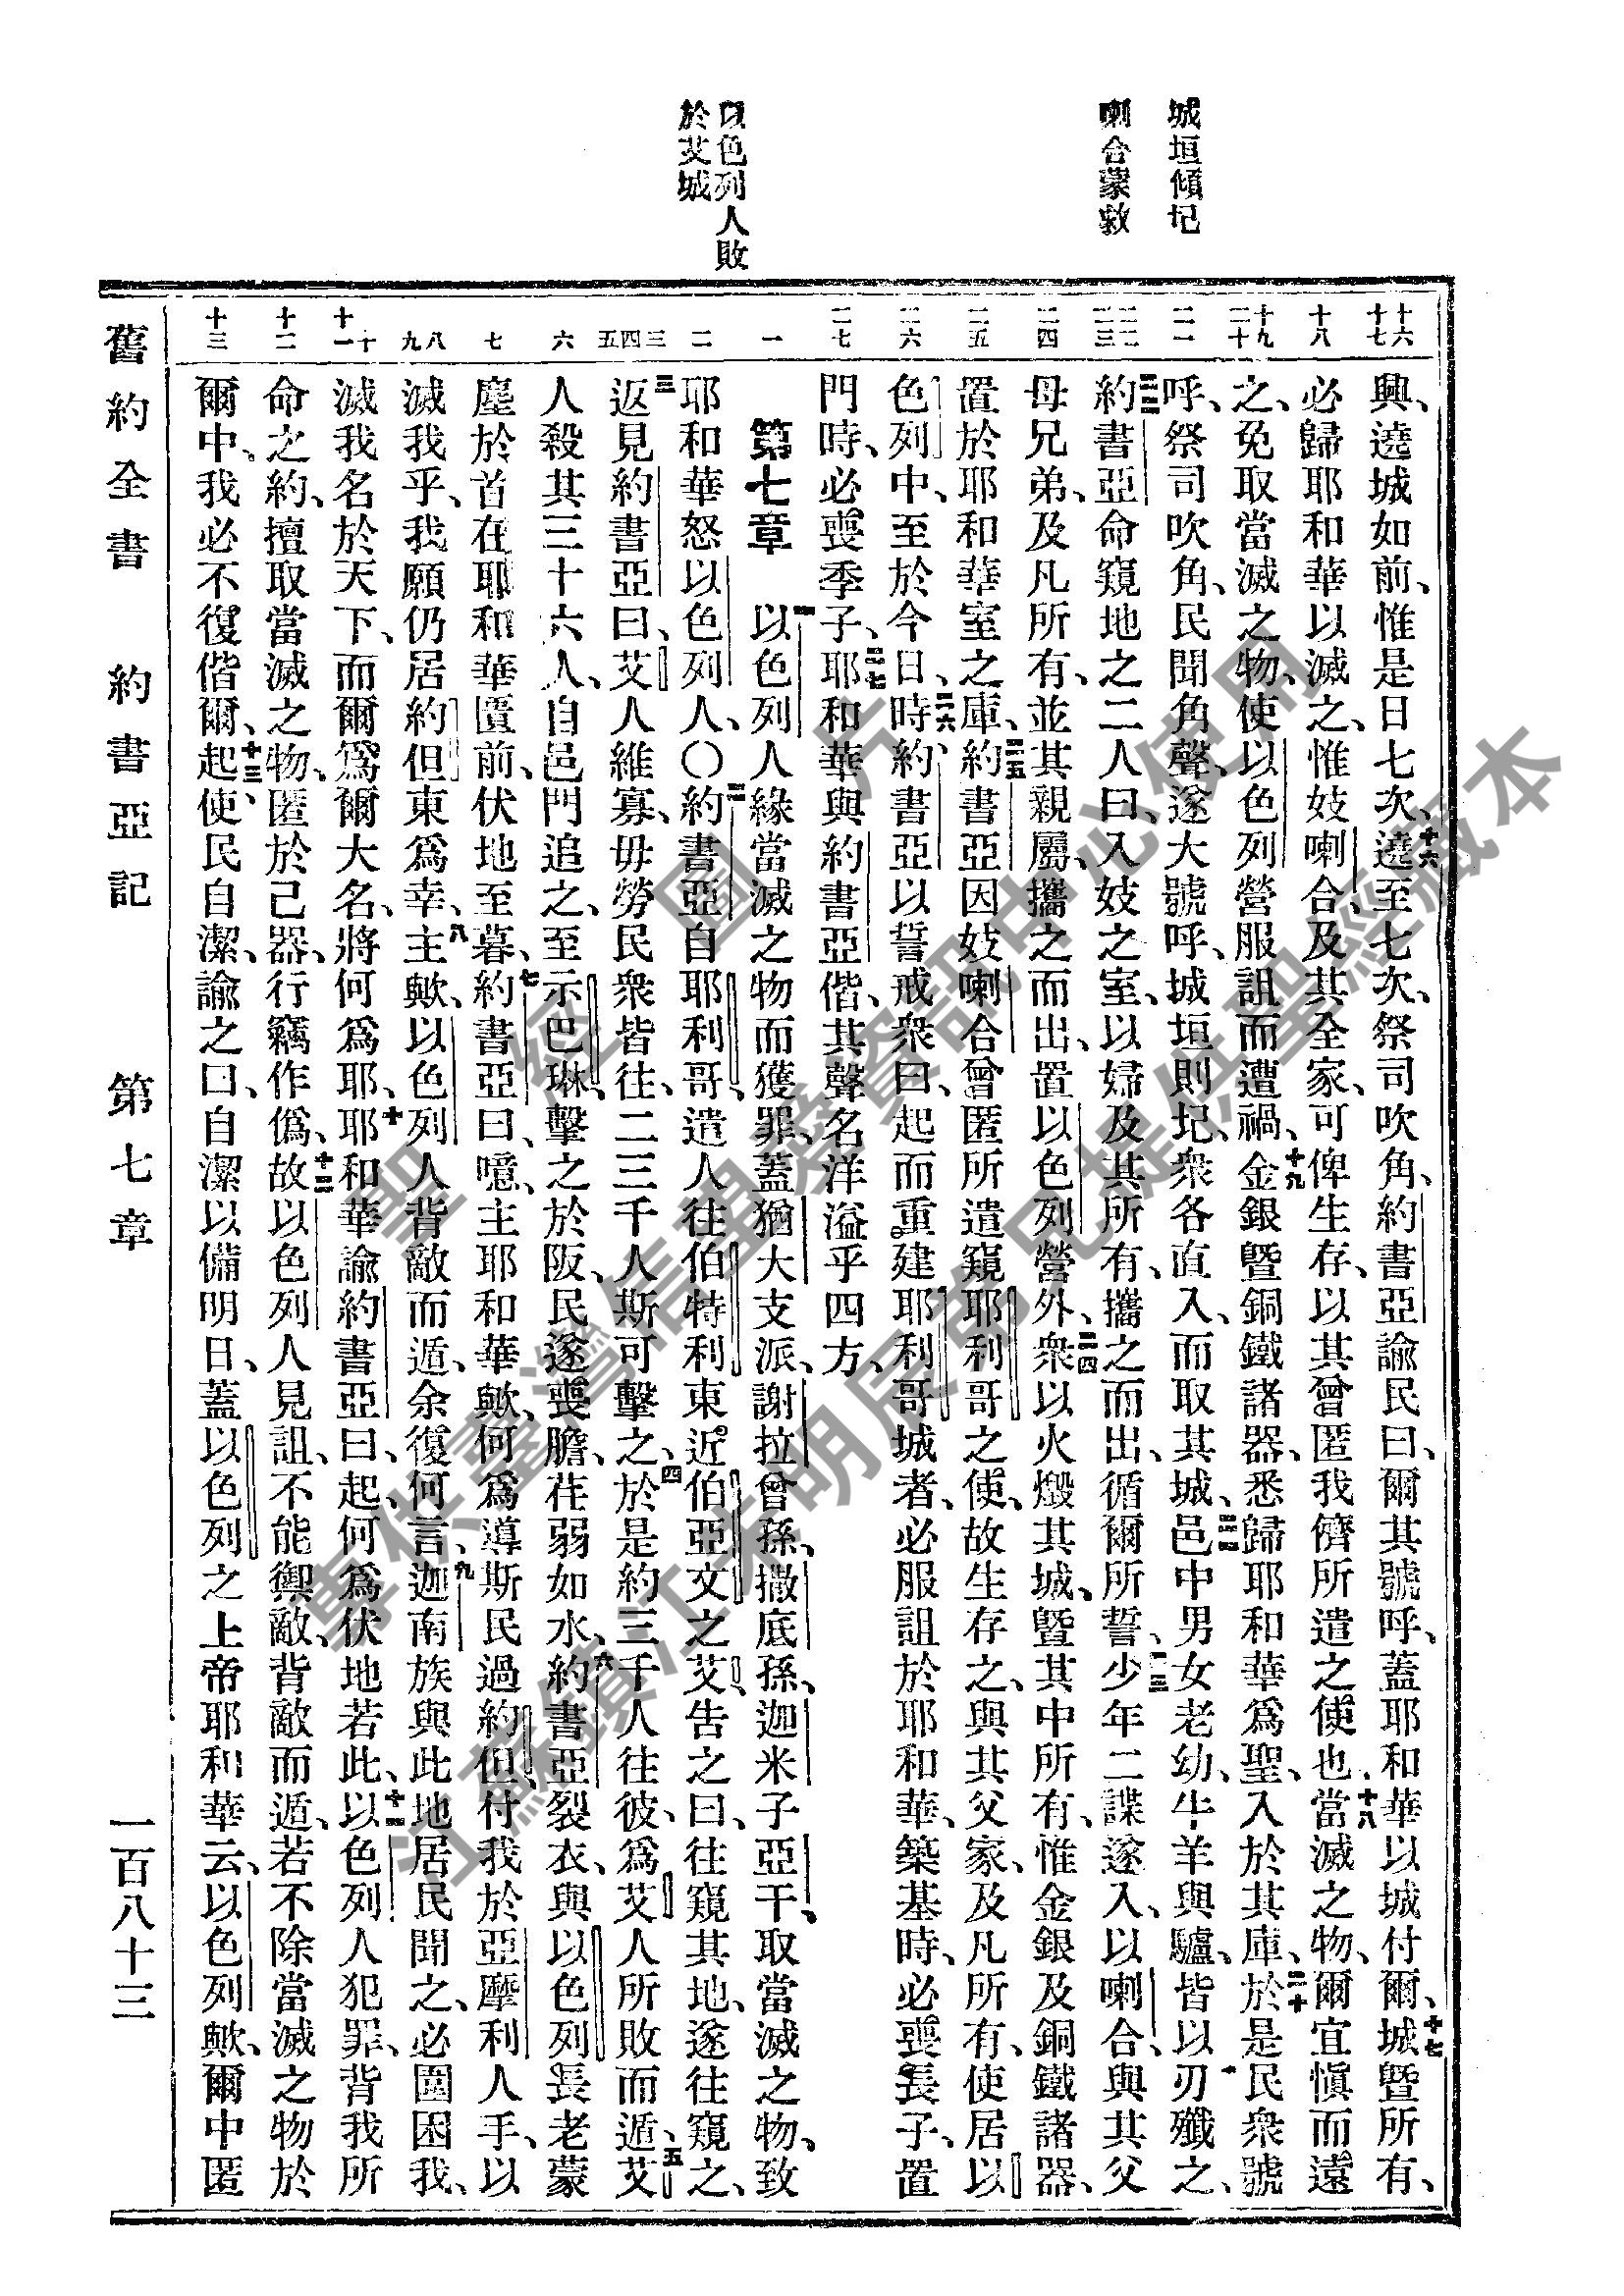 城垣傾圮
喇合蒙救
以色列人敗
於艾城
十六 十七
十八
十九 二十
二一
二二 二三
二四
二五
二六
二七
一
二
三 四 五
六
七
八 九
十 十一
十二
十三
興、遶城如前、惟是日七次、十六遶至七次、祭司吹角、約書亞諭民曰、爾其號呼、蓋耶和華以城付爾、十七城曁所有、
必歸耶和華以滅之、惟妓喇合、及其全家、可俾生存、以其曾匿我儕所遣之使也、十八當滅之物、爾宜愼而遠
之、免取當滅之物、使以色列營服詛而遭禍、十九金銀曁銅鐵諸器、悉歸耶和華爲聖、入於其庫、二十於是民衆號
呼、祭司吹角、民聞角聲、遂大號呼、城垣則圮、衆各直入、而取其城、二一邑中男女老幼、牛羊與驢、皆以刃殲之、
二二約書亞命窺地之二人曰、入妓之室、以婦及其所有、攜之而出、循爾所誓、二三少年二諜遂入、以喇合、與其父
母兄弟、及凡所有、並其親屬、攜之而出、置以色列營外、二四衆以火燬其城、曁其中所有、惟金銀及銅鐵諸器、
置於耶和華室之庫、二五約書亞因妓喇合曾匿所遣窺耶利哥之使、故生存之、與其父家、及凡所有、使居以
色列中、至於今日、二六時約書亞以誓戒衆曰、起而重建耶利哥城者、必服詛於耶和華、築基時、必喪長子、置
門時、必喪季子、二七耶和華與約書亞偕、其聲名洋溢乎四方、
第七章 一以色列人緣當滅之物而獲罪、蓋猶大支派、謝拉曾孫、撒底孫、迦米子亞干、取當滅之物、致
耶和華怒以色列人、〇二約書亞自耶利哥、遣人往伯特利東、近伯亞文之艾、告之曰、往窺其地、遂往窺之、
三返見約書亞曰、艾人維寡、毋勞民衆皆往、二三千人斯可擊之、四於是約三千人往彼、爲艾人所敗而遁、五艾
人殺其三十六人、自邑門追之、至示巴琳、擊之於阪、民遂喪膽、荏弱如水、六約書亞裂衣、與以色列長老蒙
塵於首、在耶和華匱前、伏地至暮、七約書亞曰、噫、主耶和華歟、何爲導斯民過約但、付我於亞摩利人手、以
滅我乎、我願仍居約但東爲幸、八主歟、以色列人背敵而遁、余復何言、九迦南族與此地居民聞之、必圍困我、
滅我名於天下、而爾爲爾大名、將何爲耶、十耶和華諭約書亞曰、起、何爲伏地若此、十一以色列人犯罪、背我所
命之約、擅取當滅之物、匿於己器、行竊作僞、十二故以色列人見詛、不能禦敵、背敵而遁、若不除當滅之物於
爾中、我必不復偕爾、十三起、使民自潔、諭之曰、自潔以備明日、蓋以色列之上帝耶和華云、以色列歟、爾中匿
舊約全書 約書亞記 第七章 一百八十三
聖經圖片
專供臺灣信望愛資訊中心使用
江蘇鎮江朱明辰弟兄提供聖經藏本